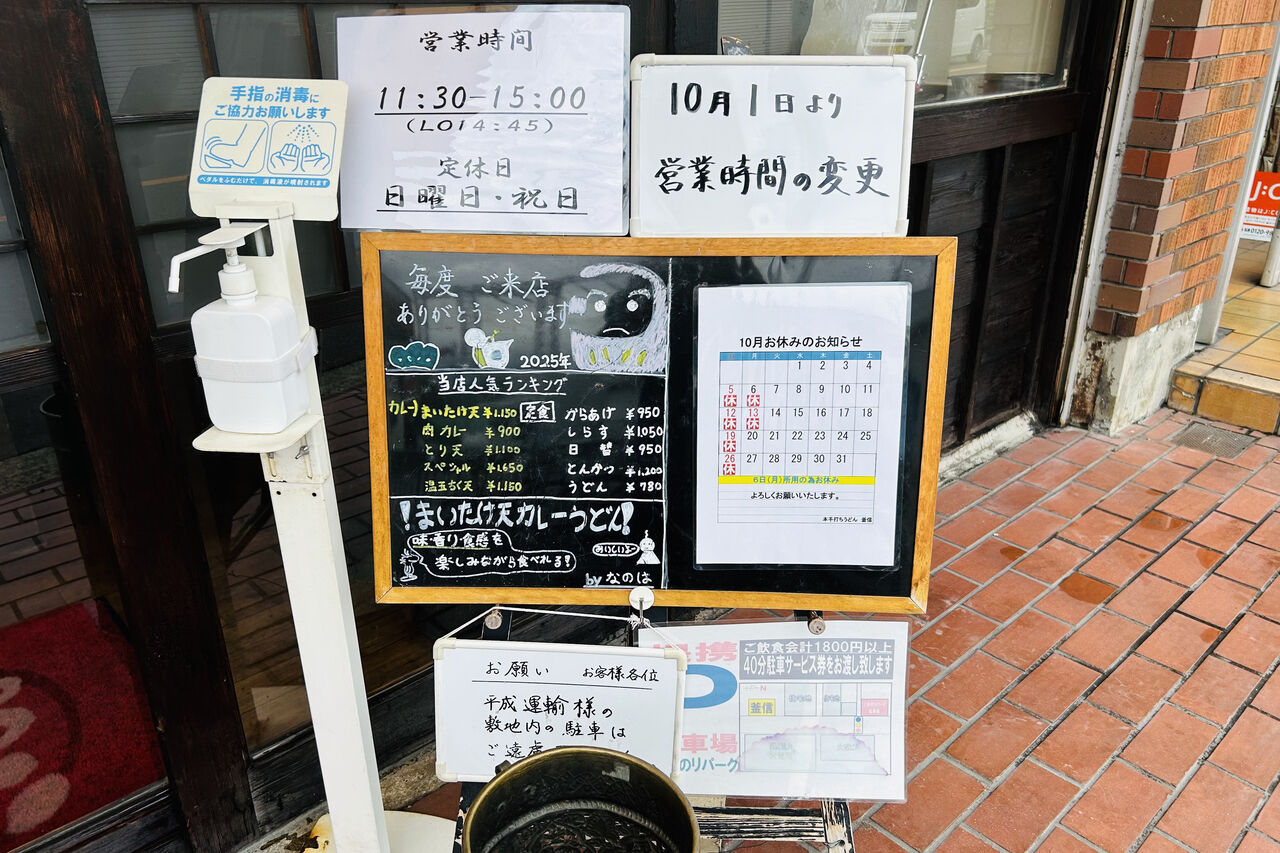 営業時間
11:30-15:00
(LO14:45)
定休日
日曜日・祝日
10月1日より
営業時間の変更
手指の消毒に
ご協力お願いします
ペダルをふむだけで、消毒液が噴射されます
毎度 ご来店
ありがとうございます
2025年
当店人気ランキング
カレー まいたけ天 ¥1.150
肉カレー ¥900
とり天 ¥1.100
スペシャル ¥1.650
温玉ちく天 ¥1.150
定食 からあげ ¥950
しらす ¥1.050
日替 ¥950
とんかつ ¥1.200
うどん ¥780
!まいたけ天カレーうどん!
味・香り・食感を
楽しみながら食べれる!
おいしいよ
by なのは
10月お休みのお知らせ
日 月 火 水 木 金 土
1 2 3 4
5 6 7 8 9 10 11
休 休
12 13 14 15 16 17 18
休 休
19 20 21 22 23 24 25
休
26 27 28 29 30 31
休
6日(月)所用の為お休み
よろしくお願いいたします。
本手打ちうどん 釜信
お願い お客様各位
平成運輸様の
敷地内の駐車は
ご遠慮
携
ご飲食会計1800円以上
40分駐車サービス券をお渡し致します
釜信
車場
のリパーク
J:C